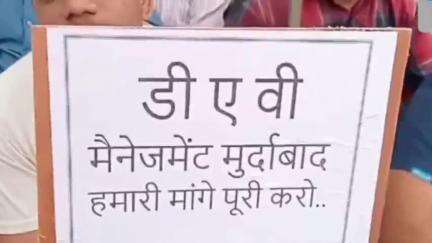 डी ए वी
मैनेजमेंट मुर्दाबाद
हमारी मांगे पूरी करो..